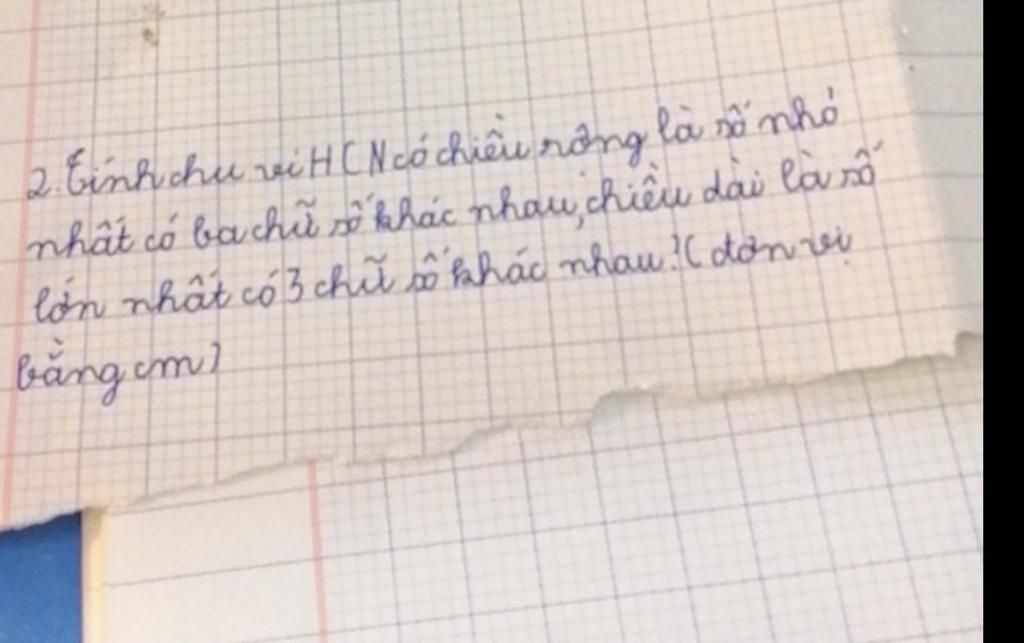 2. Tính chu vi HCN có chiều rộng là số nhỏ
nhất có ba chữ số khác nhau, chiều dài là số
lớn nhất có 3 chữ số khác nhau? (đơn vị
bằng cm)